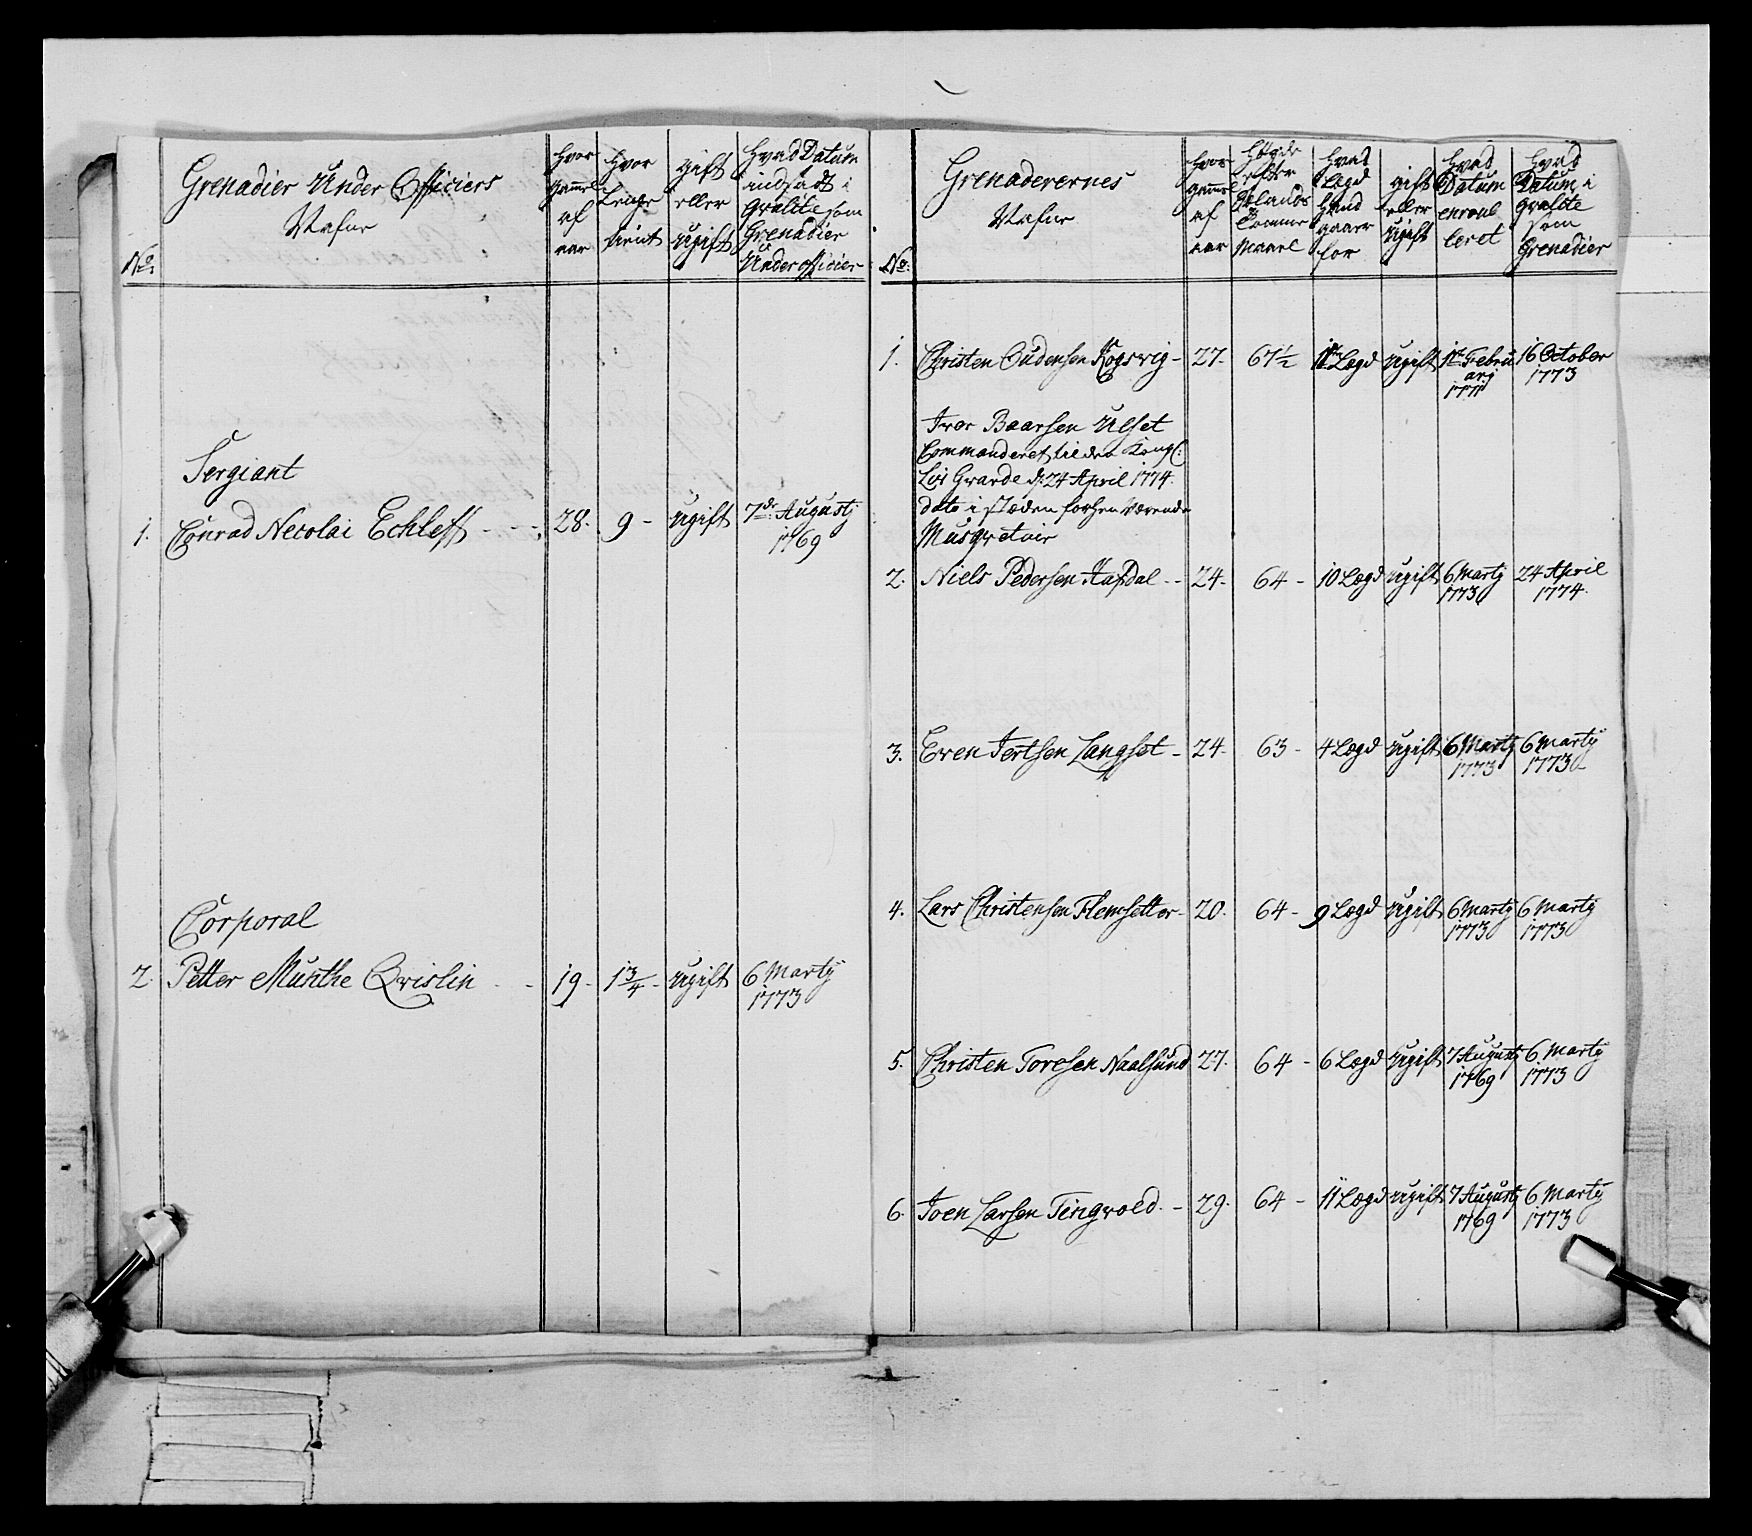 No:
Grenadier Under Officiers
Nafne
Hvor
gammel
af
aar
Hvor
Lenge
tient
gift
eller
ugift
Hvad Datum
indsadt i
qvalite som
Grenadier
Under officier
Sergiant
1. Conrad Necolai Eckleff - - - 28. 9 - ugift 7de Augustij
1769
Corporal
2. Petter Munthe Qvislin - - 19 - 1 3/4 - ugift 6 Martij
1773
No:
Grenaderernes
Nafne
Hvor
gammel
af
aar
Høyde
efter
Sælands
Tomme
Maael
Hvad
Lægd
Hand
gaaer
for
gift
eller
ugift
Hvad
Datum
enroul
leret
Hvad
Datum i
qvalite
som
Grenadier
1. Christen Oudensen Kogsvig - 27. 67 1/2 1te Lægd ugift 1te Febru 16 October
arij 1773
1771
Iver Baarsen Ulset
Commanderet til den Kongl:
Liv Gvarde d: 24 April 1774.
dito i stæden forhen værende
Musqvetair
2. Niels Pedersen Aafdal - - 24. 64 - 10 Lægd ugift 6 Martij 24 April
1773 1774.
3. Even Iertsen Langset - 24. 63 - 4 Lægd ugift 6 Martij 6 Martij
1773 1773
4. Lars Christensen Flemsetter - 20. 64 - 9 Lægd ugift 6 Martij 6 Martij
1773 1773
5. Christen Toresen Naalsund 27. 64 - 6 Lægd ugift 7 Augustij 6 Martij
1769 1773
6. Joen Larsen Tingvold. - 29. 64 - 11 Lægd ugift 7 Augustij 6 Martij
1769 1773